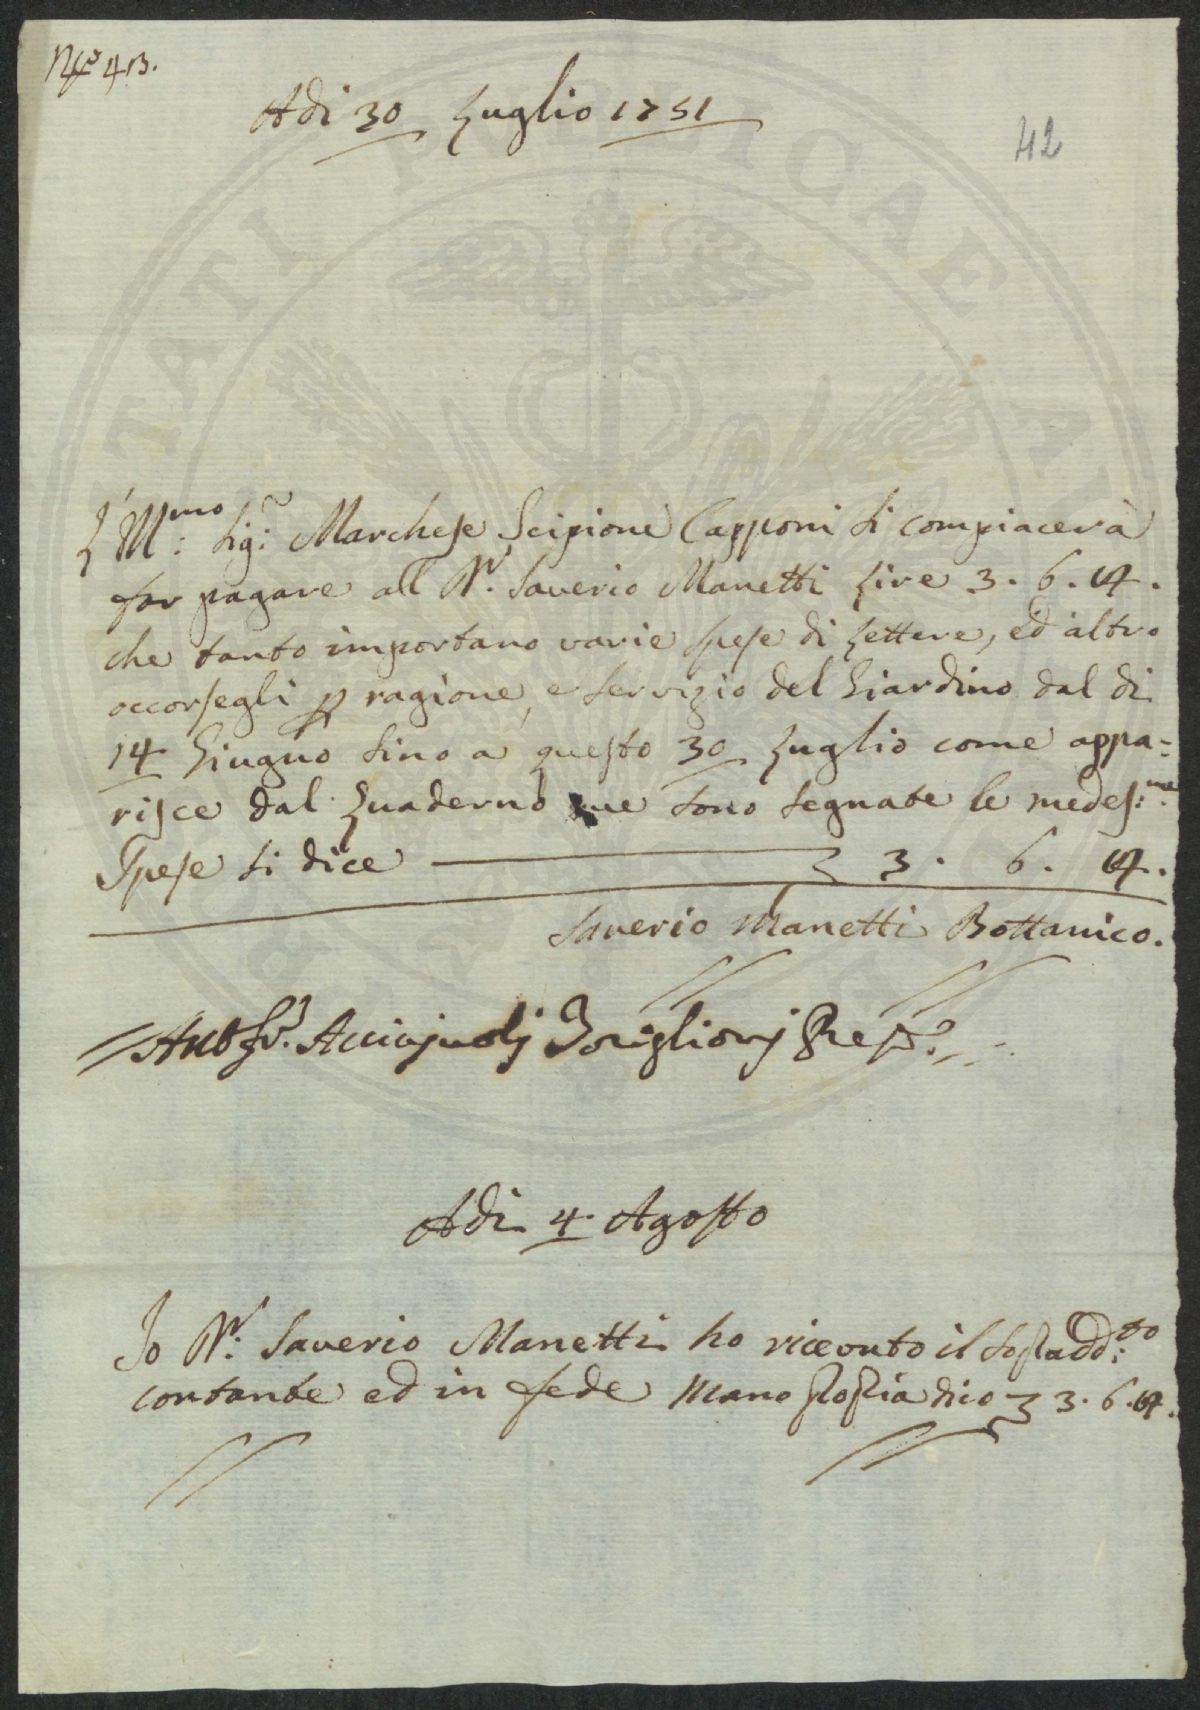 N.º 43.
Adi 30 Luglio 1751
42
L'Ill.mo Sig.r Marchese Scipione Capponi si compiacerà
far pagare all D.r Saverio Manetti Lire 3. 6. 14.
che tanto importano varie spese di Lettere, ed altro
occorsegli p ragione, e servizio del Giardino dal di
14 Giugno sino a questo 30 Luglio come appa=
risce dal Quaderno ue sono segnate le medes:me
Spese si dice 3. 6. 14.
Saverio Manetti Bottanico.
Acciajuoli
Adi 4 Agosto
Io D.r Saverio Manetti ho riceuto il sopradd:to
contante ed in fede mano propria dico 3. 6. 14.
TATI PUBLICAE